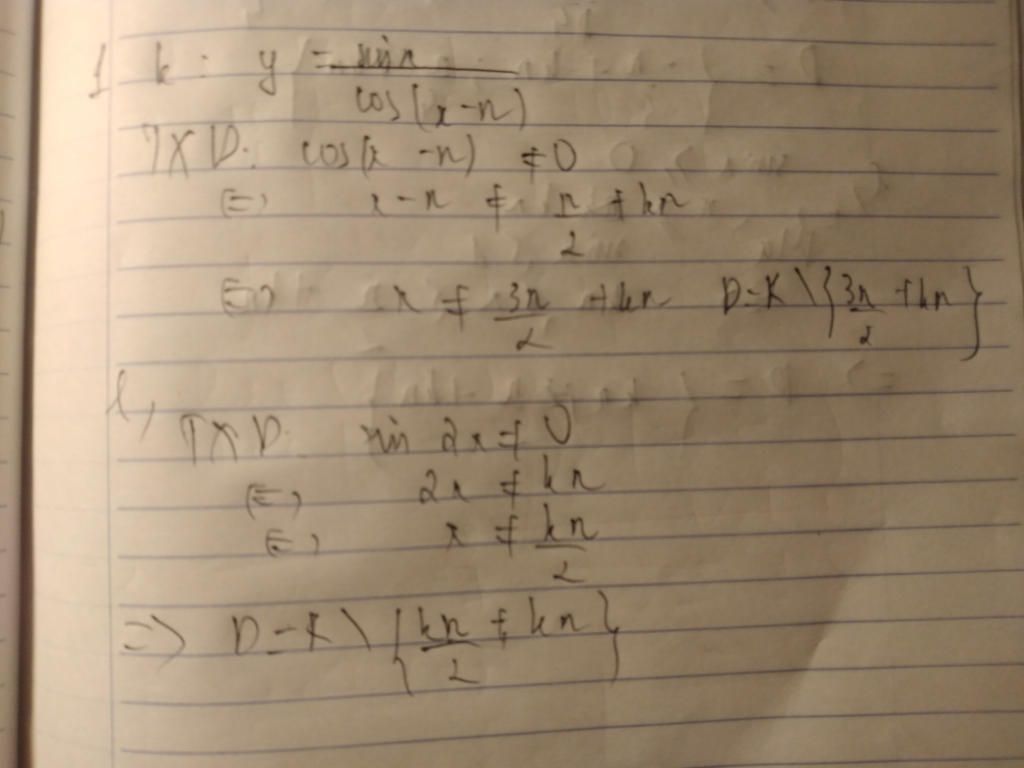 1 k: y = sinx / cos(x-π)
TXD: cos(x - π) ≠ 0
⇔ x - π ≠ π/2 + kπ
⇔ x ≠ 3π/2 + kπ D = R \ {3π/2 + kπ}
l,
TXD: sin 2x ≠ 0
⇔ 2x ≠ kπ
⇔ x ≠ kπ/2
=> D = R \ {kπ/2 + kπ}